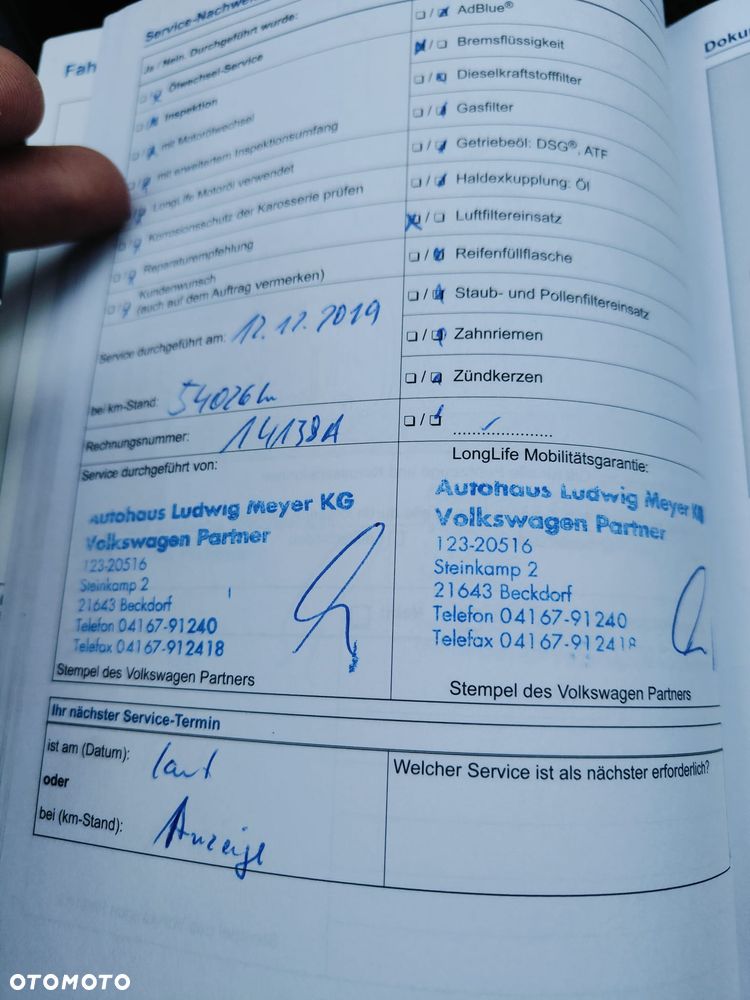 Fah
Service-Nachwei
Ja / Nein. Durchgeführt wurde:
Ölwechsel-Service
Inspektion
mit Motorölwechsel
mit erweitertem Inspektionsumfang
LongLife Motoröl verwendet
Korrosionsschutz der Karosserie prüfen
Reparaturempfehlung
Kundenwunsch
(auch auf dem Auftrag vermerken)
Service durchgeführt am: 12.12.2019
bei km-Stand: 54026
Rechnungsnummer: 14138A
AdBlue®
Bremsflüssigkeit
Dieselkraftstofffilter
Gasfilter
Getriebeöl: DSG®, ATF
Haldexkupplung: Öl
Luftfiltereinsatz
Reifenfüllflasche
Staub- und Pollenfiltereinsatz
Zahnriemen
Zündkerzen
Service durchgeführt von:
Autohaus Ludwig Meyer KG
Volkswagen Partner
123-20516
Steinkamp 2
21643 Beckdorf
Telefon 04167-91240
Telefax 04167-912418
Stempel des Volkswagen Partners
LongLife Mobilitätsgarantie:
Autohaus Ludwig Meyer KG
Volkswagen Partner
123-20516
Steinkamp 2
21643 Beckdorf
Telefon 04167-91240
Telefax 04167-912418
Stempel des Volkswagen Partners
Ihr nächster Service-Termin
ist am (Datum): laut
oder
bei (km-Stand): Anzeige
Welcher Service ist als nächster erforderlich?
Doku
OTOMOTO